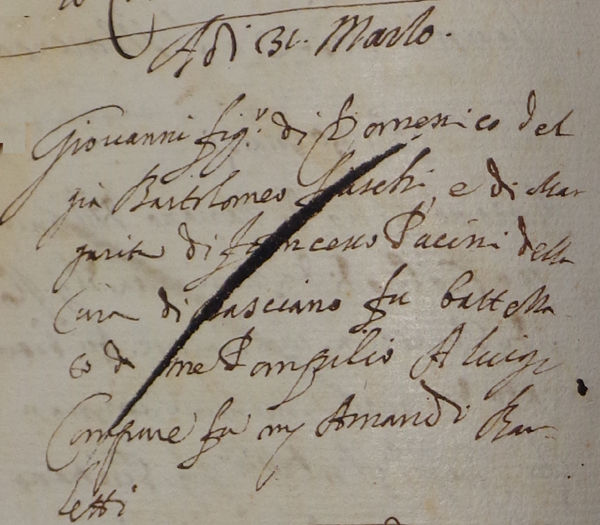 Adi 31. Marzo.
Giovanni fig.º di Domenico del
già Bartolomeo e di Mar
garita di Francesco Pacini della
Cura di Casciano fu battezza
to da me Pompilio Aluigi
Compare fu m Amanio Bar
letti